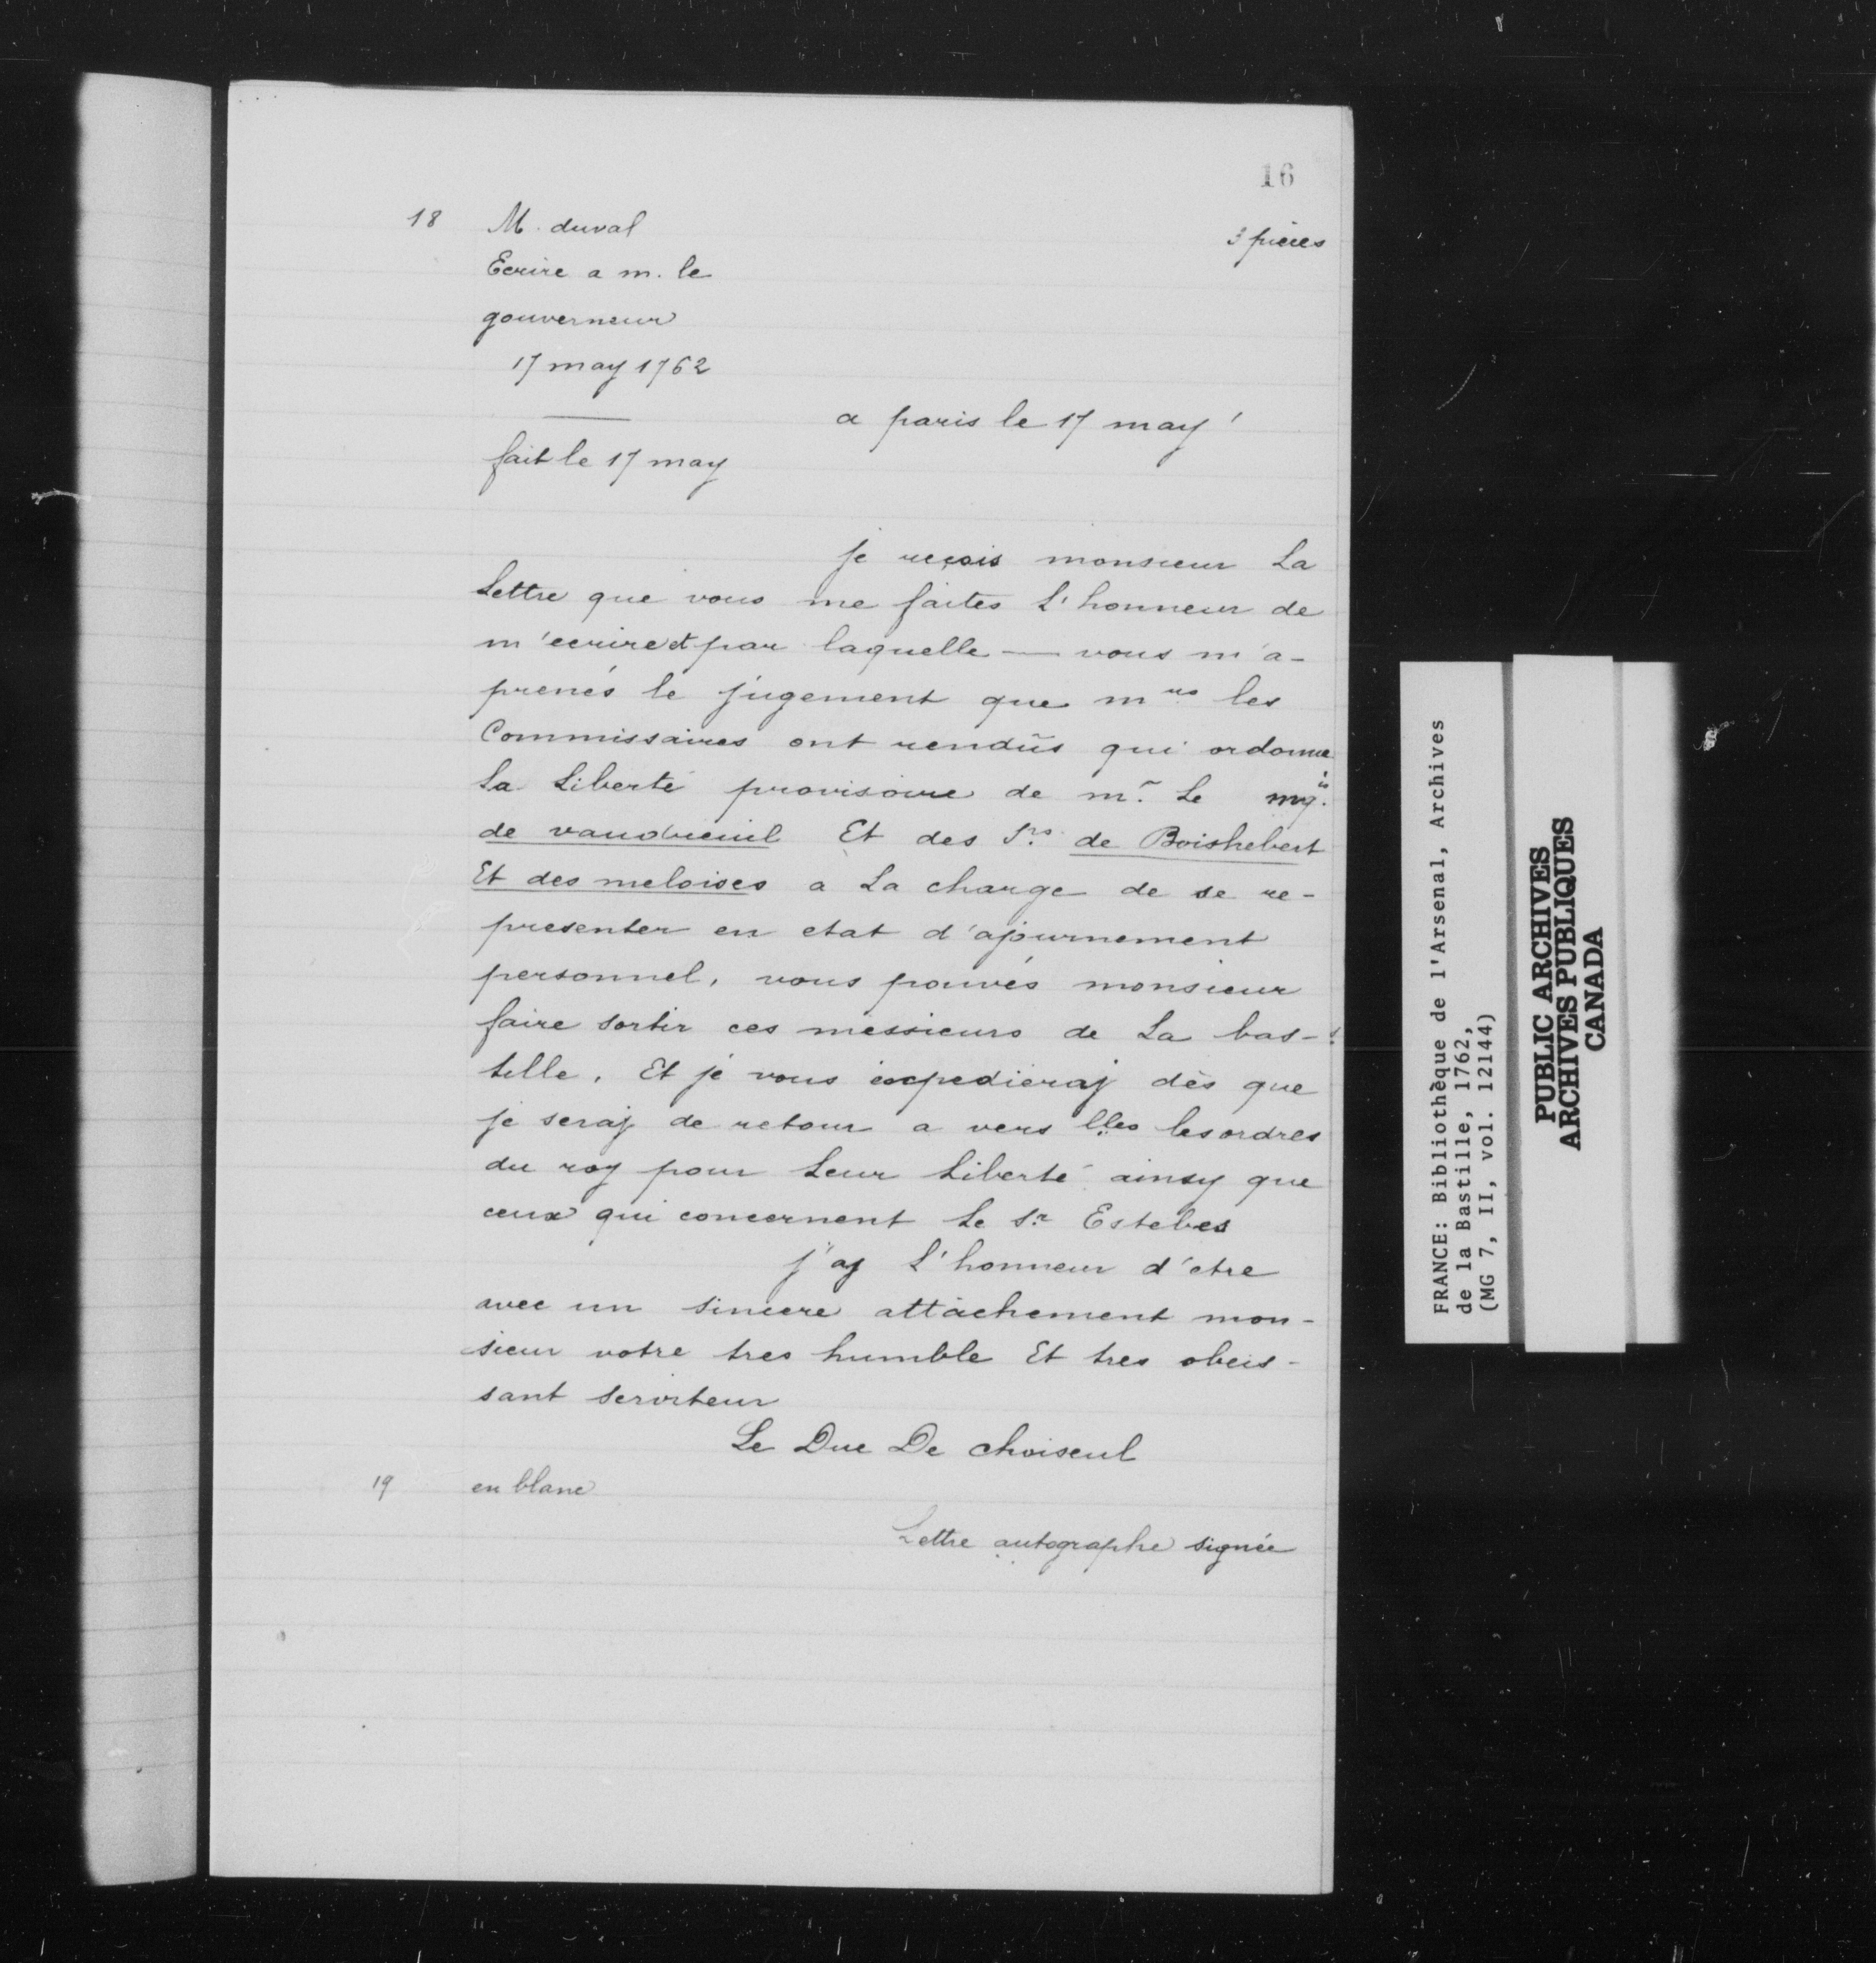 16
18 M. duval
3 pièces
Ecrire a m. le
gouverneur
17 may 1762
a paris le 17 may
fait le 17 may
je reçois monsieur La
Lettre que vous me faites L'honneur de
m'ecrire et par laquelle — vous m'a-
prenés le jugement que mrs les
Commissaires ont rendüs qui ordonne
La Liberté provisoire de mr. Le mqis.
de vaudreuil Et des Srs. de Boishebert
Et des meloises a La charge de se re-
presenter en etat d'ajournement
personnel, vous pouvés monsieur
faire sortir ces messieurs de La bas-
tille. Et je vous expedieraj dès que
je seraj de retour a vers lles les ordres
du roy pour Leur Liberté ainsy que
ceux qui concernent Le Sr. Estebes
j'aj L'honneur d'etre
avec un sincere attachement mon-
sieur votre tres humble Et tres obeis-
sant serviteur
Le Duc De choiseul
19 en blanc
Lettre autographe signée
FRANCE: Bibliothèque de l'Arsenal, Archives
de la Bastille, 1762,
(MG 7, II, vol. 12144)
PUBLIC ARCHIVES
ARCHIVES PUBLIQUES
CANADA